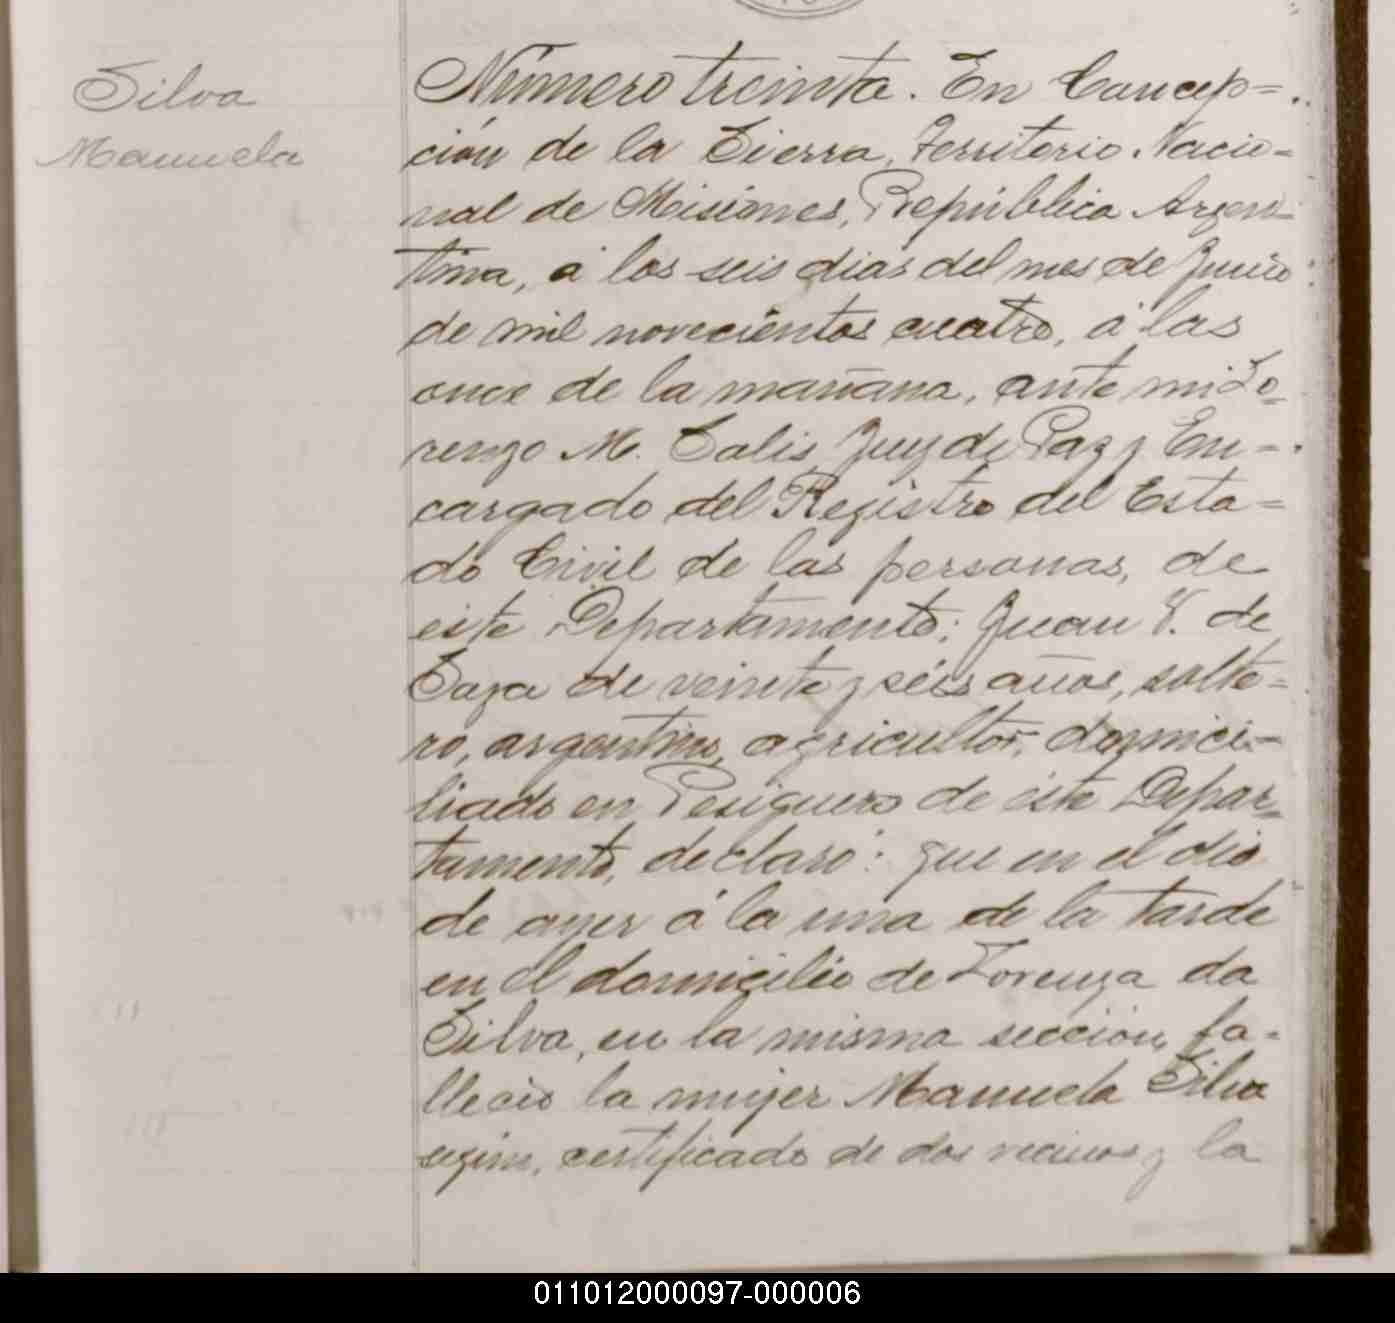 Silva
Manuela
Número treinta. En Concep=
ción de la Sierra, Territorio Nacio-
nal de Misiones, República Argen-
tina, á los seis dias del mes de Junio
de mil novecientos cuatro, á las
once de la mañana, ante mi Lo-
renzo M. Solis, Juez de Paz y En-
cargado del Registro del Esta=
do Civil de las personas, de
este Departamento: Juan V. de
de veinte y seis años, solte=
ro, argentino, agricultor, domici-
liado en Pesiguero de éste Depar-
tamento, declaró: que en el dia
de ayer á la una de la tarde
en el domicilio de Lorenza da
Silva, en la misma sección, fa-
lleció la mujer Manuela Silva
según, certificado de dos vecinos y la
011012000097-000006